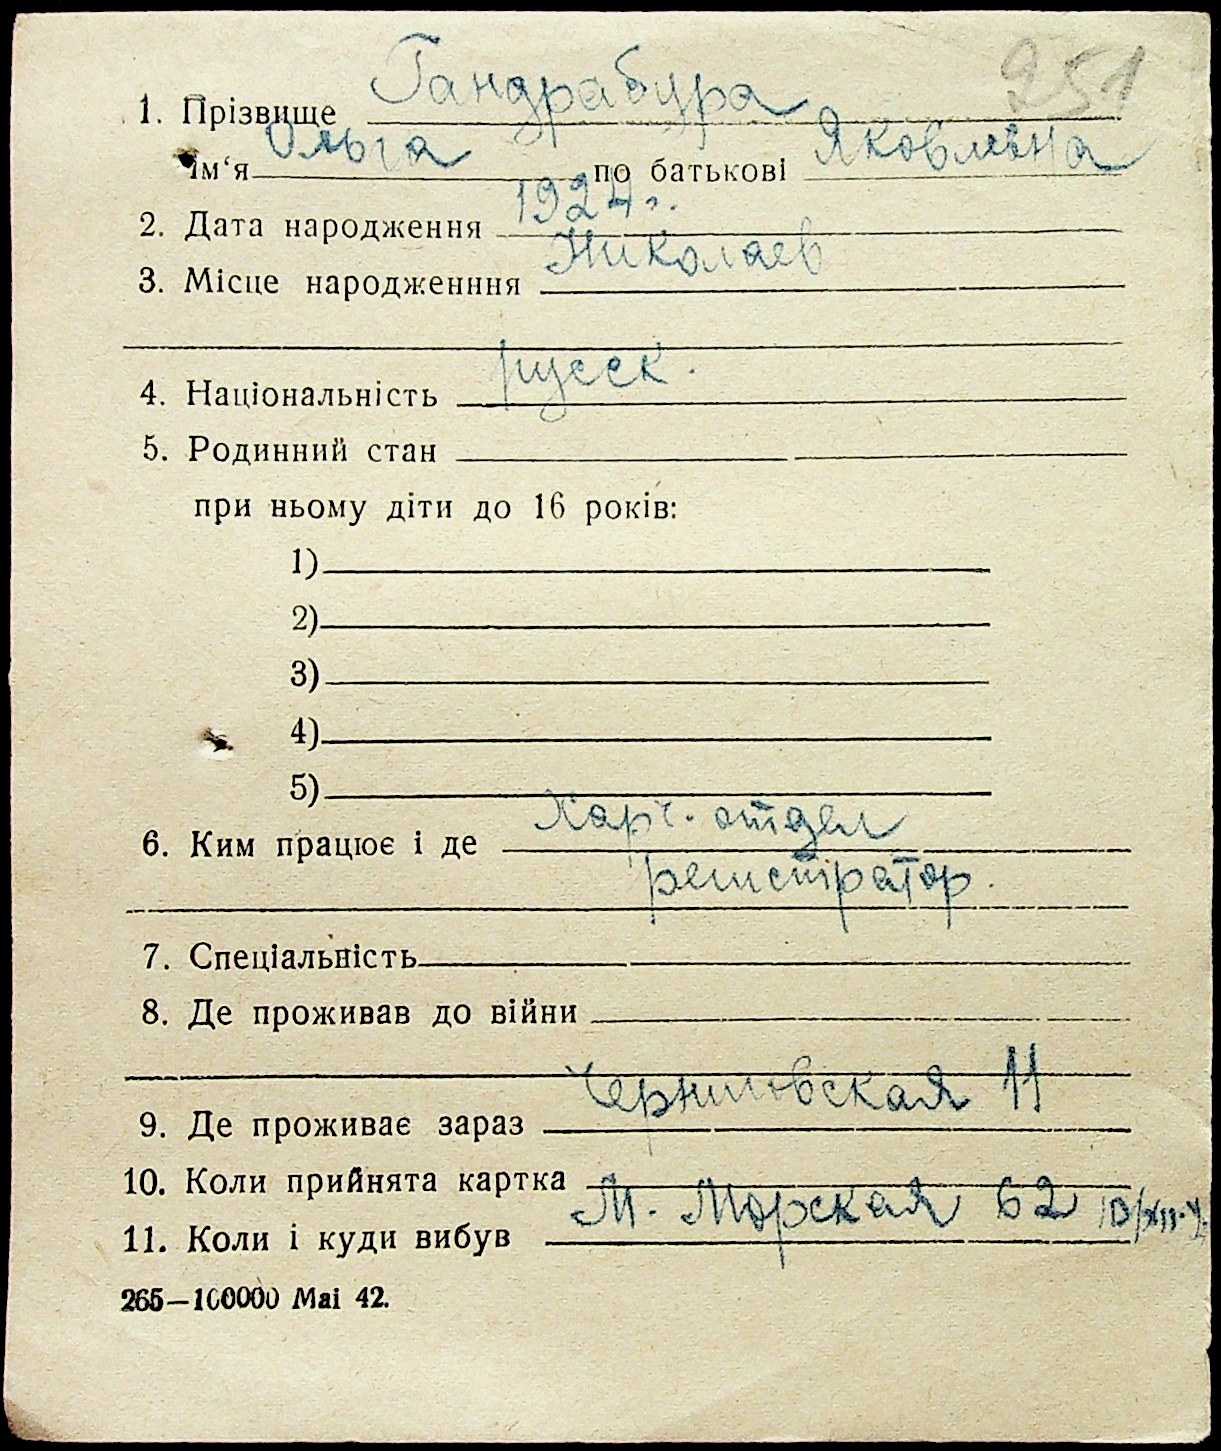 251
1. Прізвище Гандрабура
Ім‘я Ольга по батькові Яковлевна
2. Дата народження 1924 г.
3. Місце народженння Николаев
4. Національність русск.
5. Родинний стан
при ньому діти до 16 років:
1)
2)
3)
4)
5)
6. Ким працює і де Харч. отдел
регистратор.
7. Спеціальність
8. Де проживав до війни
9. Де проживає зараз Черниговская 11
10. Коли прийнята картка
11. Коли і куди вибув М. Морская 62
265—100000 Mai 42.